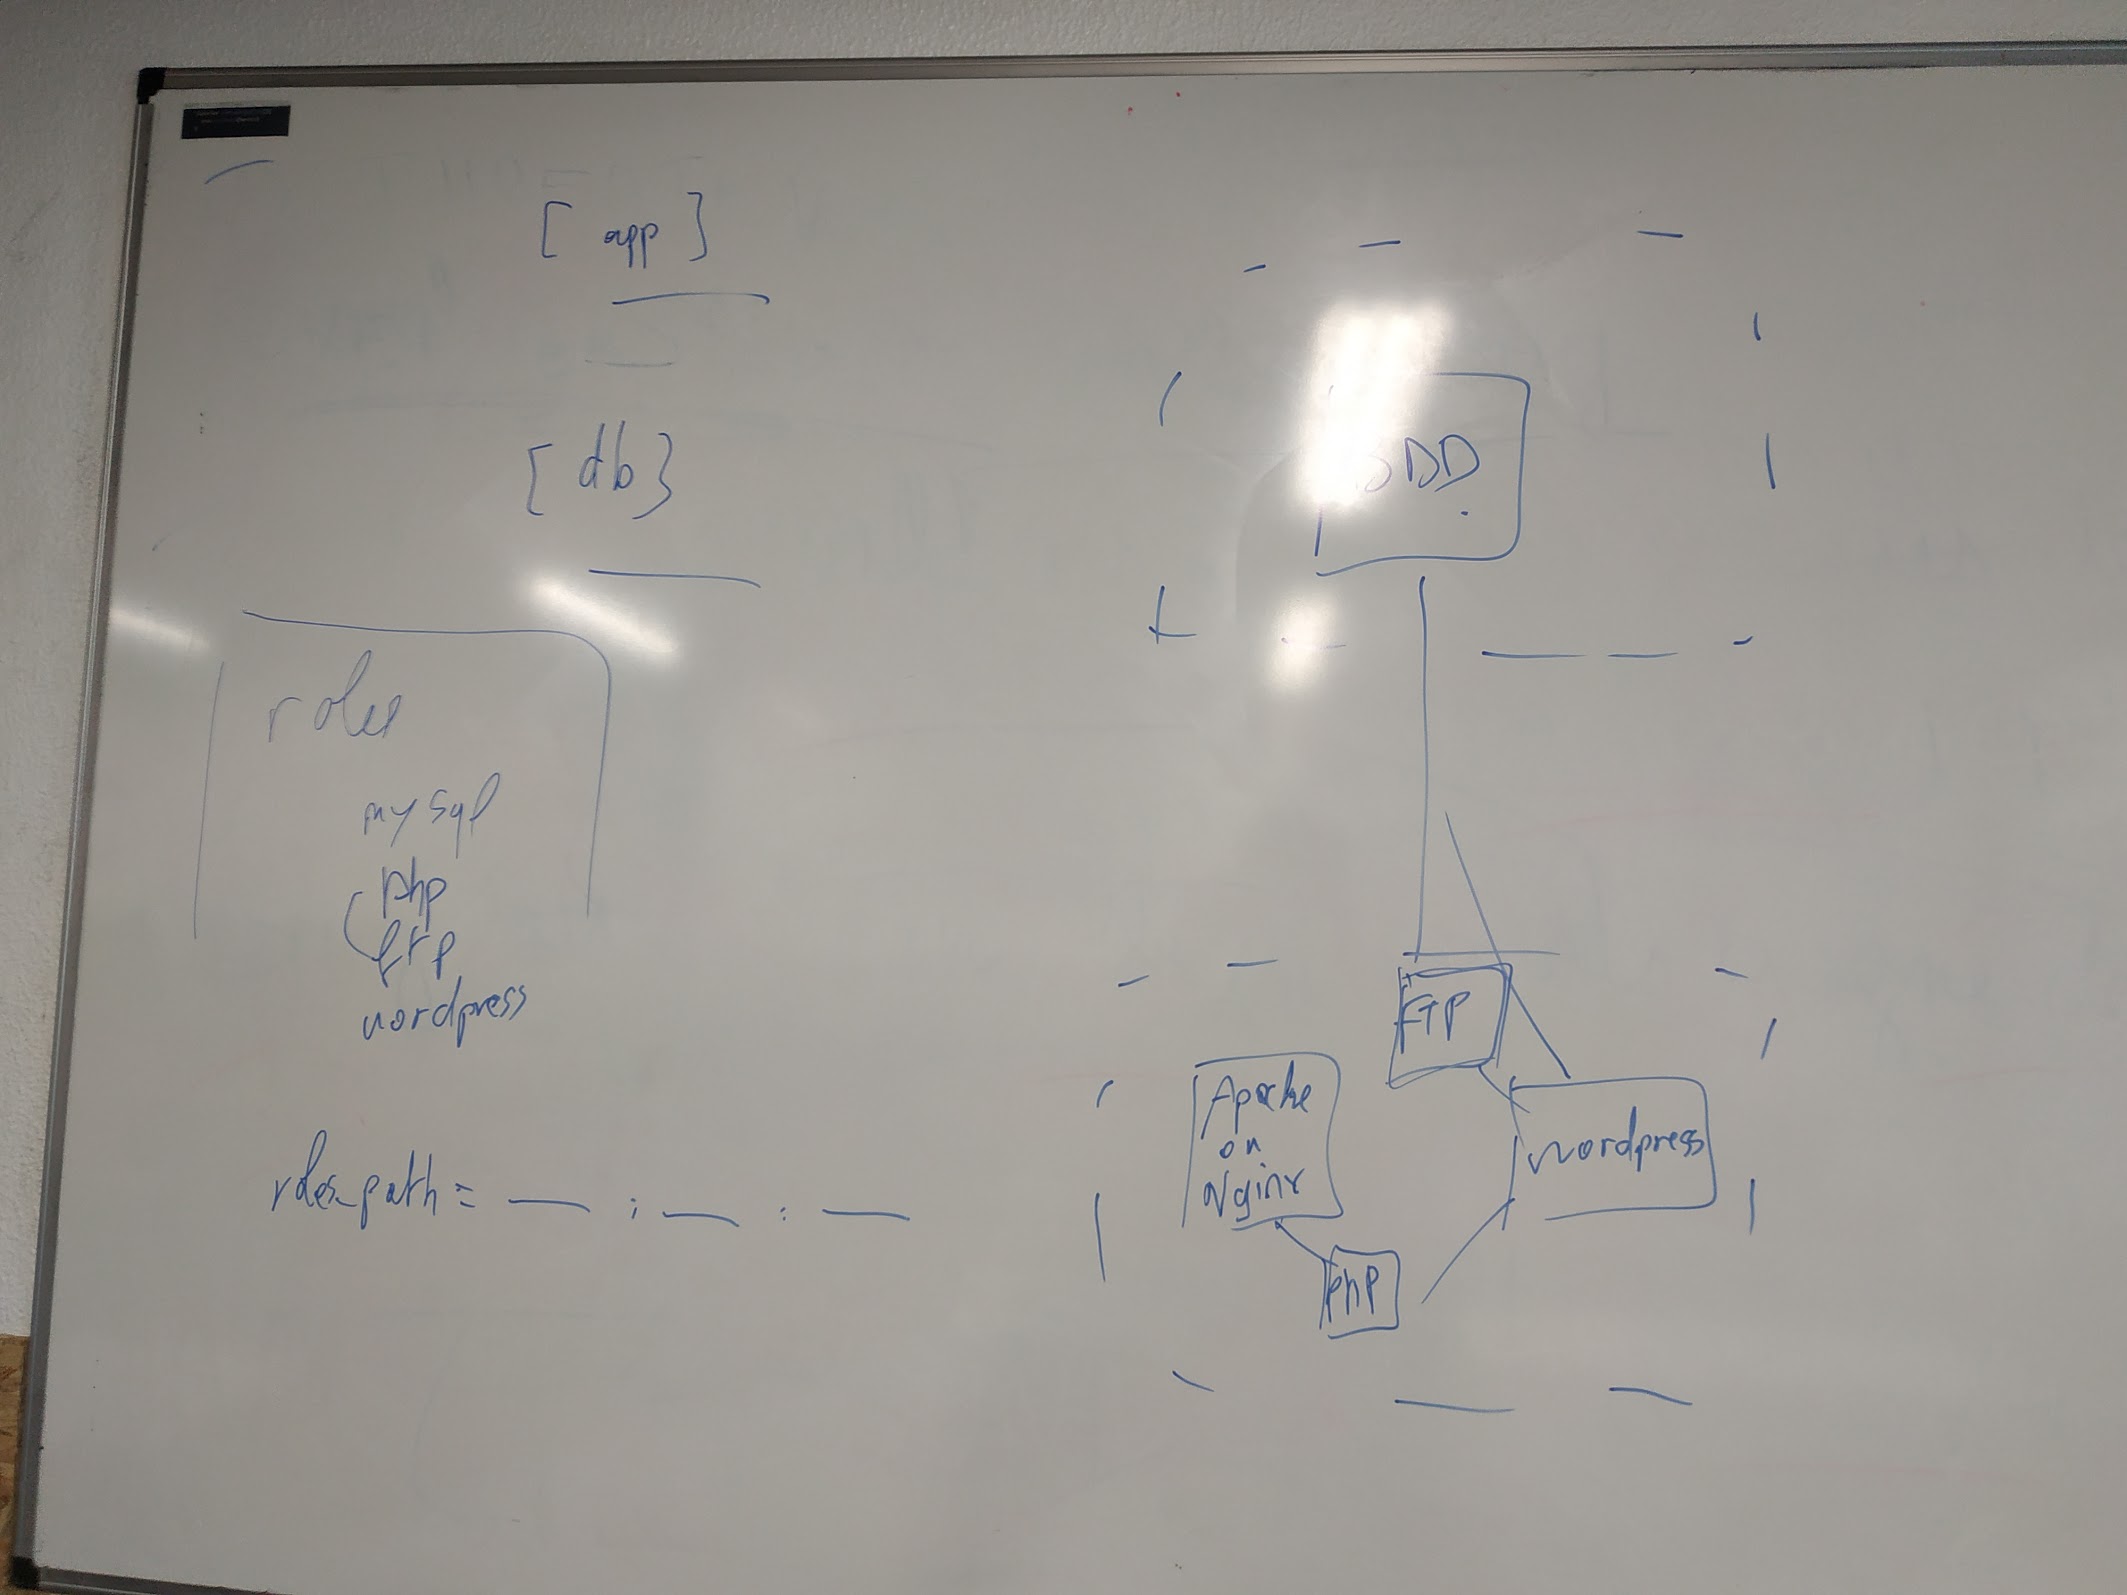 [ app ]
[ db }
roles
mysql
php
ftp
wordpress
roles_path = __ : __ : __
BDD
FTP
Apache
ou
Nginx
wordpress
php